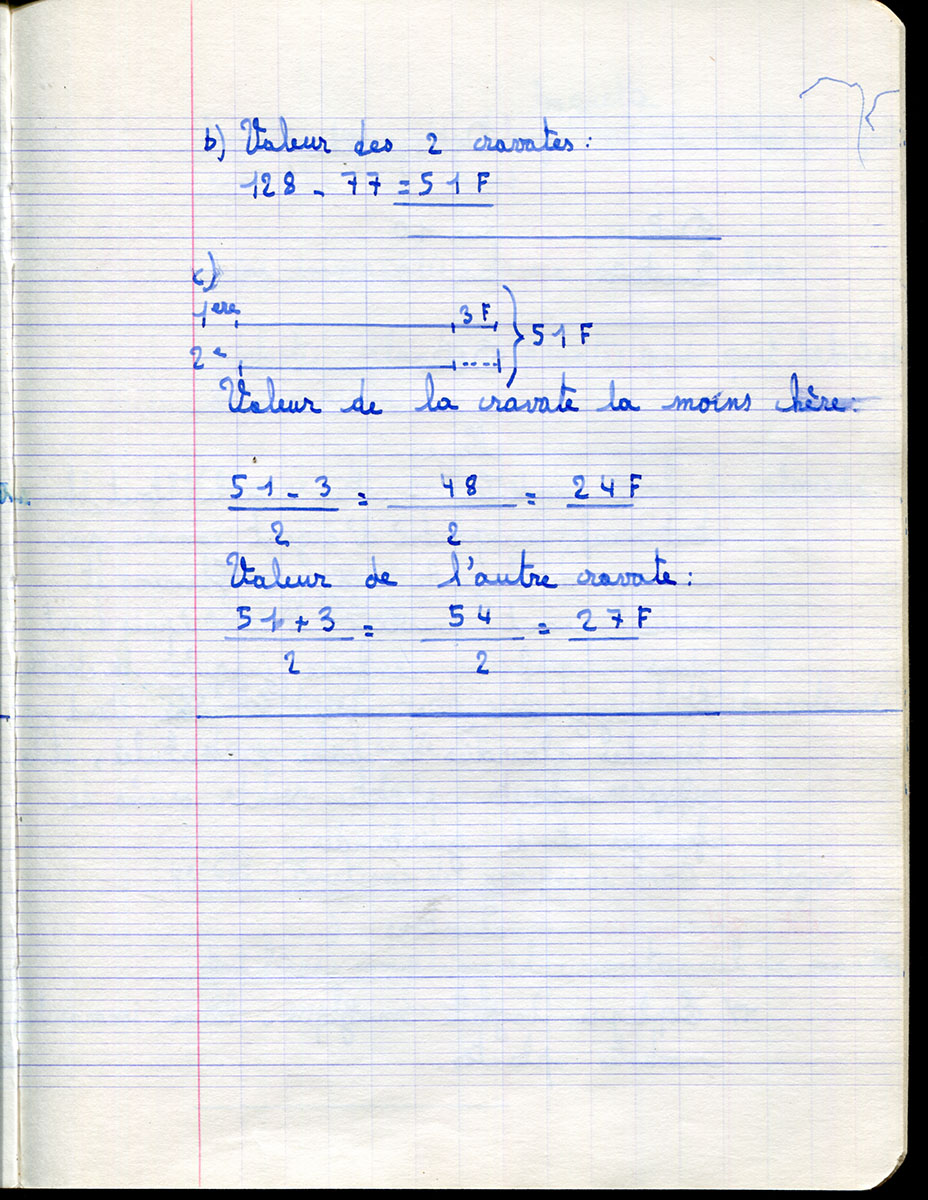 b) Valeur des 2 cravates:
128 - 77 = 51 F
c)
1ère 3 F
2e
51 F
Valeur de la cravate la moins chère:
51 - 3 / 2 = 48 / 2 = 24 F
Valeur de l'autre cravate:
51 + 3 / 2 = 54 / 2 = 27 F